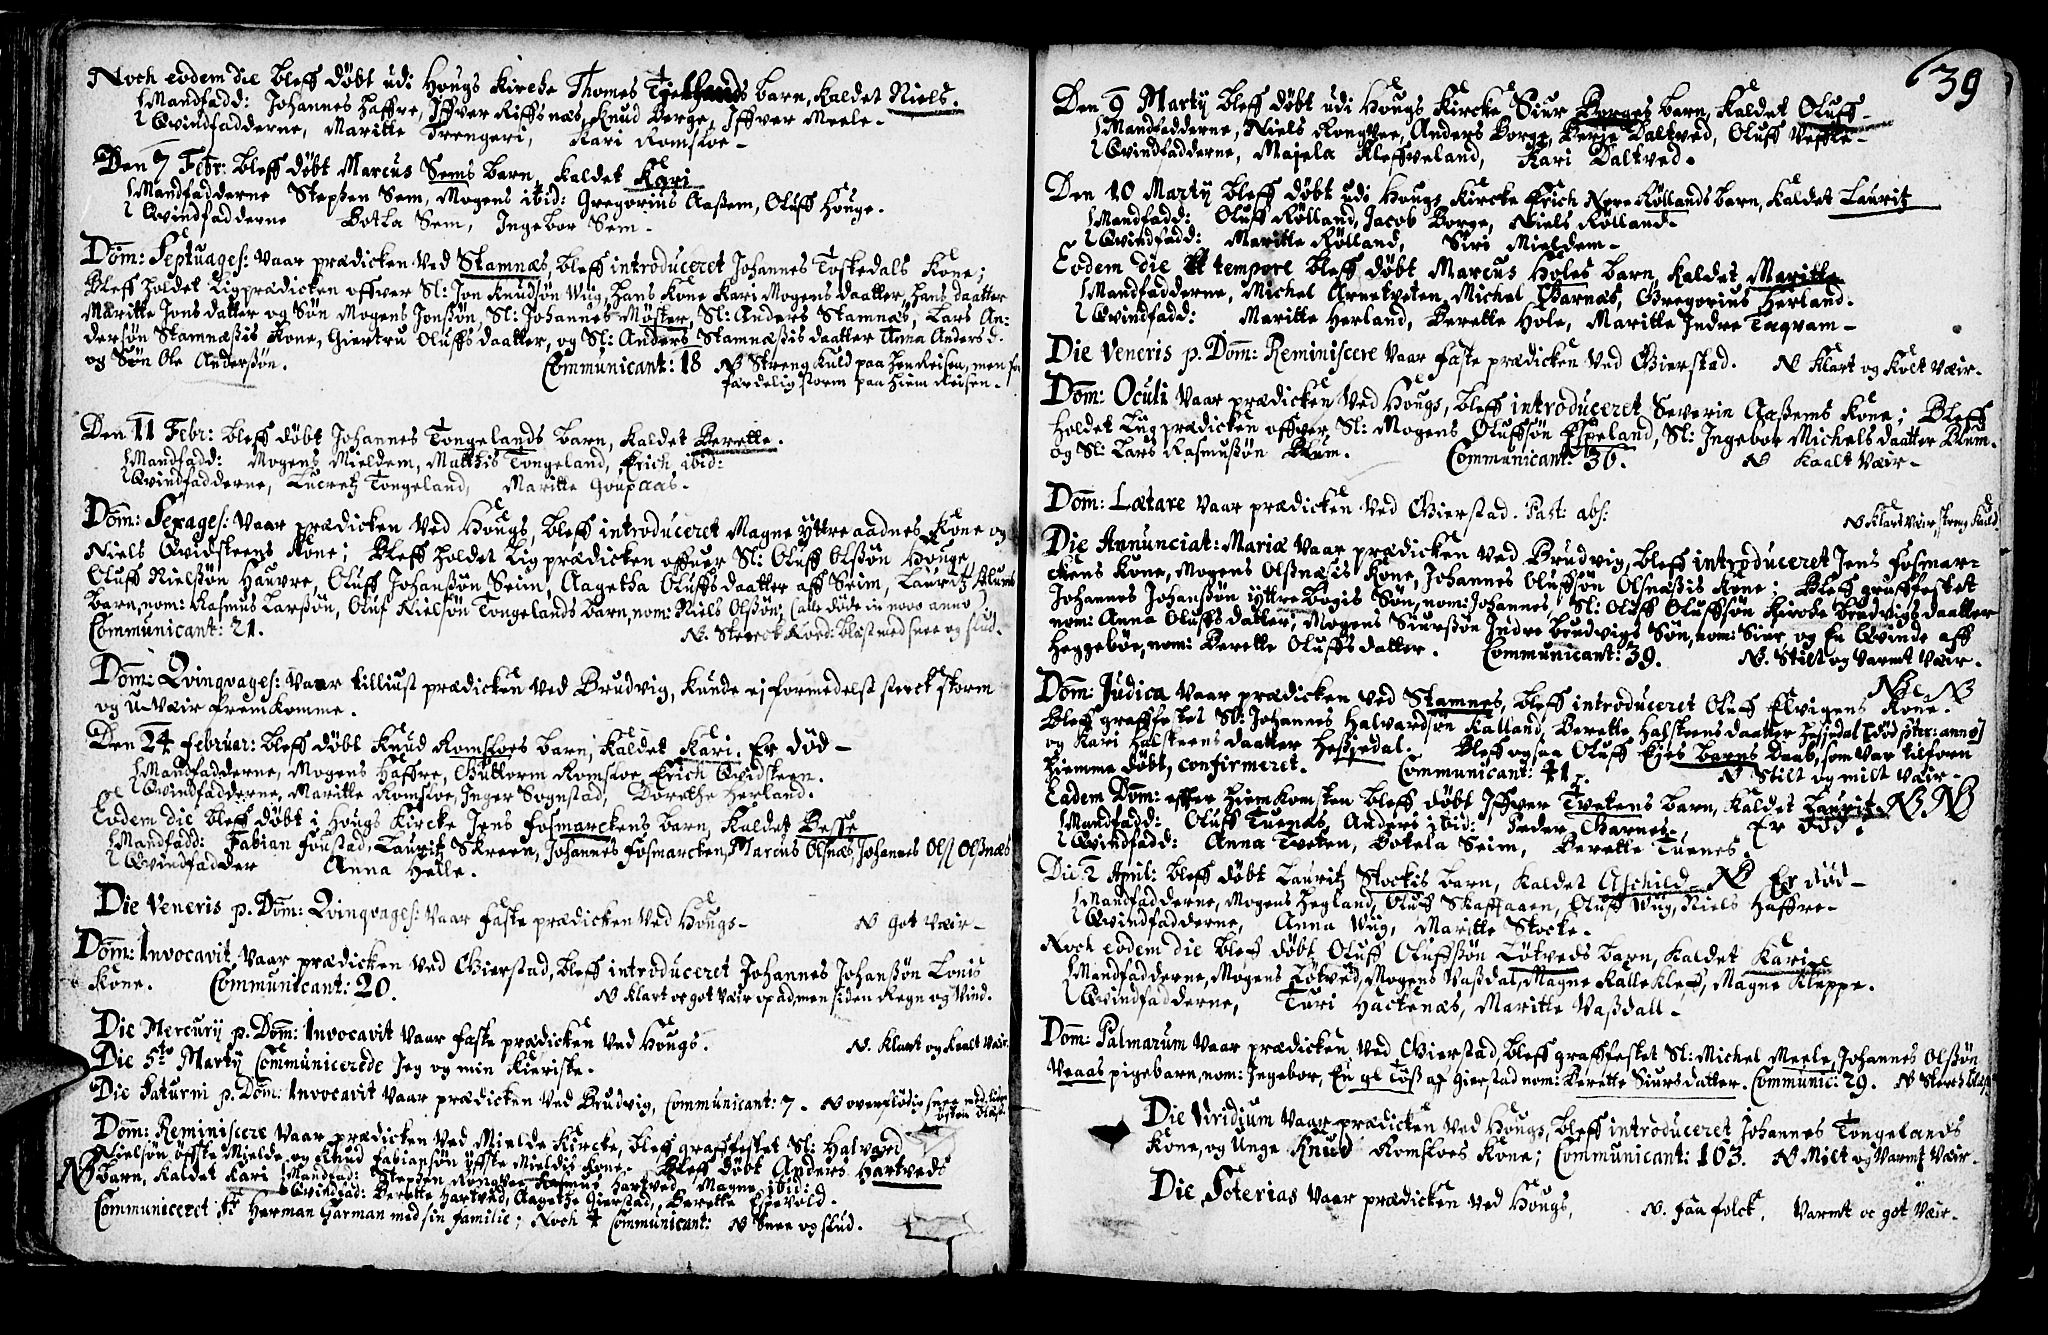 Noch eodem die bleff døbt udi Hougs Kirche Thomes Tyelhands barn, kaldet Niels.
Mandfadd: Johannes Haffre, Iffver Kiffsnæs, Knud Berge, Iffver Meele.
Qvindfadderne, Maritte Trengeri, Kari Romsloe.
Den 7 Febr: bleff døbt Marcus Sems barn, kaldet Kari
Mandfadderne Stephen Sem, Mogens ibid: Gregorius Aassem, Oluff Houge.
Qvindfadderne Botla Sem, Ingebor Sem.
Dom: Septuages: vaar prædicken ved Stamnæs, bleff introduceret Johannes Toskedals Kone;
Bleff holdet Ligprædicken offver Sl: Jon Knudsøn Wiig, hans Kone Kari Mogens daatter, hans daatter
Maritte Jons datter og Søn Mogens Jonssøn, Sl: Johannes Møster, Sl: Anders Stamnæs, Lars An-
dersøn Stamnæssis Kone, Giertru Oluffs daatter, og Sl: Anders Stamnæssis daatter Anna Anders d.
og Søn Ole Anderssøn. Communicant: 18 NB Streng Kuld paa hen Reisen, men for
færdelig storm paa hiem Reisen.
Den 11 Febr: bleff døbt Johannes Tongelands barn, kaldet Berette.
Mandfadd: Mogens Mieldem, Matthis Tongeland, Erich ibid:
Qvindfadderne, Lucretz Tongeland, Maritte Goupaas.
Dom: Sexages: Vaar prædicken ved Hougs, bleff introduceret Magne Yttre aadnes Kone og
Niels Qvidsteens Kone; Bleff holdet Lig prædicken offuer Sl: Oluff Olssøn Houge,
Oluff Nielssøn Hauvre, Oluff Johanssøn Seim, Aagetha Oluffs daatter aff Seim, Lauritz Blums
barn, nom: Rasmus Larssøn, Oluf Nielsøn Tongelands barn, nom: Niels Olssøn, (alle døde in novo anno)
Communicant: 21. NB. Sterck Nord: blæst med snee og slud.
Dom: Qvinqvages: Vaar tilliust prædicken ved Brudvig, kunde ej formedelst sterck storm
og u-væir fremkomme.
Den 24 Februar: bleff døbt Knud Romsloes barn, kaldet Kari. Er død
Mandfadderne, Mogens Haffre, Guttorm Romsloe, Erich Qvidsteen.
Qvindfadderne, Maritte Romsloe, Inger Sognstad, Dorethe Herland.
Eodem die bleff døbt i Hougs Kircke Jens Fosmarckens barn, kaldet Besse
Mandfadd: Fabian Foustad, Lauritz Skreen, Johannes Fosmarcken, Marcus Olsnæs, Johannes Ols Olsnæs
Qvindfadder Anna Helle.
Die Veneris p. Dom: Qvinqvages: Vaar faste prædicken ved Hougs. NB got væir.
Dom: Invocavit Vaar prædicken ved Gierstad, bleff introduceret Johannes Johanssøn Lonis
Kone. Communicant: 20. NB klart oc got væir op ad, men siden Regn og Vind.
Die Mercurij p. Dom: Invocavit Vaar faste prædicken ved Hougs. NB. klart og kaalt væir.
Die 5te Martij Communicerede Jeg og min Kieriste.
Die Saturni p. Dom: Invocavit Vaar prædicken ved Brudvig, Communicant: 7. NB overflødig snee med
østen blæst.
Dom: Reminiscere Vaar prædicken ved Mielde Kircke, bleff graffestet Sl: Halvord
Nielsøn øffste Mielde, og Knud Fabiansøn øffste Mieldis Kone. Bleff døbt Anders Hartveds
NB barn, kaldet Kari. Mandfad: Stephen Rongved, Rasmus Hartved, Magne ibid:
Qvindfad: Berette Hartved, Aagethe Gierstad, Berette Espevold.
Communiceret Sr Herman Garman med sin familie; Noch 4 Communicant: NB Snee og slud.
39
Den 9 Martij bleff døbt udi Hougs Kircke Siur Borges barn, kaldet Oluff.
Mandfadderne, Niels Rongvee, Anders Borge, Berje Daltved, Oluff Veffle.
Qvindfadderne, Majela Kleffveland, Kari Daltved.
Den 10 Martij bleff døbt udi Hougs Kircke Erich Nere Røllands barn, kaldet Lauritz
Mandfadd: Oluff Rølland, Jacob Borge, Niels Rølland.
Qvindfadd: Maritte Rølland, Siri Mieldem.
Eodem die et tempore bleff døbt Marcus Holes barn, kaldet Maritte
Mandfadderne, Michel Arnetveten, Michel Garnæs, Gregorius Herland.
Qvindfadd: Maritte Herland, Berette Hole, Maritte Indre Taqvam.
Die Veneris p. Dom: Reminiscere Vaar faste prædicken ved Gierstad. NB klart og kolt væir.
Dom: Oculi Vaar prædicken ved Hougs, bleff introduceret Severin Aassems Kone; Bleff
holdet Liig prædicken offver Sl: Mogens Oluffsøn Espeland, Sl: Ingebor Michels daatter Blum.
og Sl: Lars Rasmussøn Blum. Communicant: 36. NB kaalt væir.
Dom: Lætare Vaar prædicken ved Gierstad. Past: abs: NB klart væir, streng kuld.
Die Annunciat: Mariæ Vaar prædicken ved Brudvig, bleff introduceret Jens Fosmar-
ckens Kone, Mogens Olssnæsis Kone, Johannes Oluffsøn Olsnæssis Kone; Bleff graffestet
Johannes Johanssøn yttre bogis Søn, nom: Johannes, Sl: Oluff Oluffsøn Kirche brudvigs daatter
nom: Anna Oluffs datter, Mogens Siurssøn Indre brudvigs Søn, nom: Siur, og En Qvinde aff
Heggebøe, nom: Berette Oluffs datter. Communicant: 39. NB. Stilt og varmt væir.
Dom: Judica Vaar prædicken ved Stamnes, bleff introduceret Oluff Elvigens Kone. NB NB
Bleff graffestet Sl: Johannes Halvardsøn Kalland, Berette Halsteens daatter Hessjedal [død ster: anno]
og Kari Halsteens daatter Hessjedal. Bleff ogsaa Oluff Eies barns Daab, som var tilforn
hiemme døbt, confirmeret. Communicant: 41. NB Stilt og milt væir.
Eadem Dom: effter hiemkomsten bleff døbt Iffver Tvetens barn, kaldet Lauritz. NB NB
Mandfadd: Oluff Tuenæs, Anders ibid: Peder Garnes. Er død.
Qvindfadd: Anna Tveten, Botela Seim, Berette Tuenes.
Die 2 April: bleff døbt Lauritz Stockis barn, kaldet Aschild. NB Er død
Mandfadderne, Mogens Hegland, Oluff Skaftaaen, Oluff Wiig, Niels Haffre.
Qvindfadderne, Anna Wiig, Maritte Stocke.
Noch eodem die bleff døbt Oluff Oluffssøn Løtveds barn, kaldet Kari
Mandfadderne, Mogens Løtved, Mogens Vassdal, Magne Kallekleff, Magne Kleppe.
Qvindfadderne, Turi Hactenæs, Maritte Vassdall.
Dom: Palmarum Vaar prædicken ved Gierstad, bleff graffestet Sl: Michel Meele, Johannes Olssøn
Veaas pigebarn, nom: Ingebor, En gl Tøss af Gierstad nom: Berette Siurs datter. Communic: 29. NB Sterck blæst
Die Viridium Vaar prædicken ved Hougs, bleff introduceret Johannes Tongelands
Kone, og Unge Knud Romsloes Kone; Communicant: 103. NB Milt og Varmt væir.
Die Soterias Vaar prædicken ved Hougs, NB. faa folck, Varmt oc got væir.